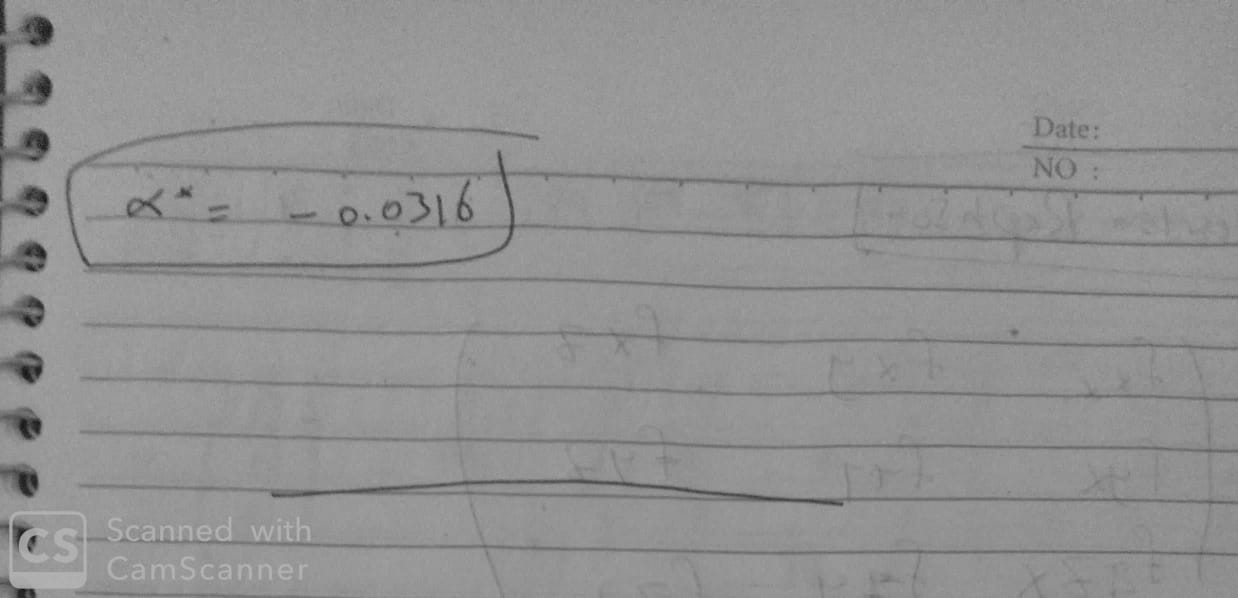 Date:
NO :
α* = - 0.0316
CS Scanned with
CamScanner